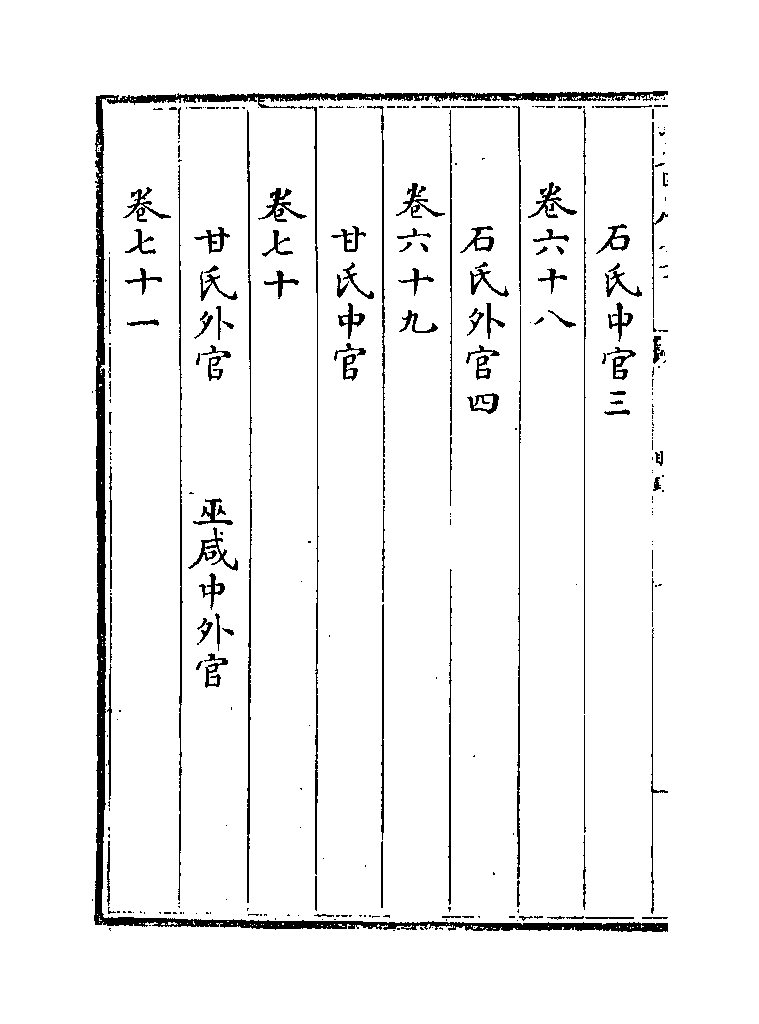 石氏中官三
卷六十八
石氏外官四
卷六十九
甘氏中官
卷七十
甘氏外官　巫咸中外官
卷七十一